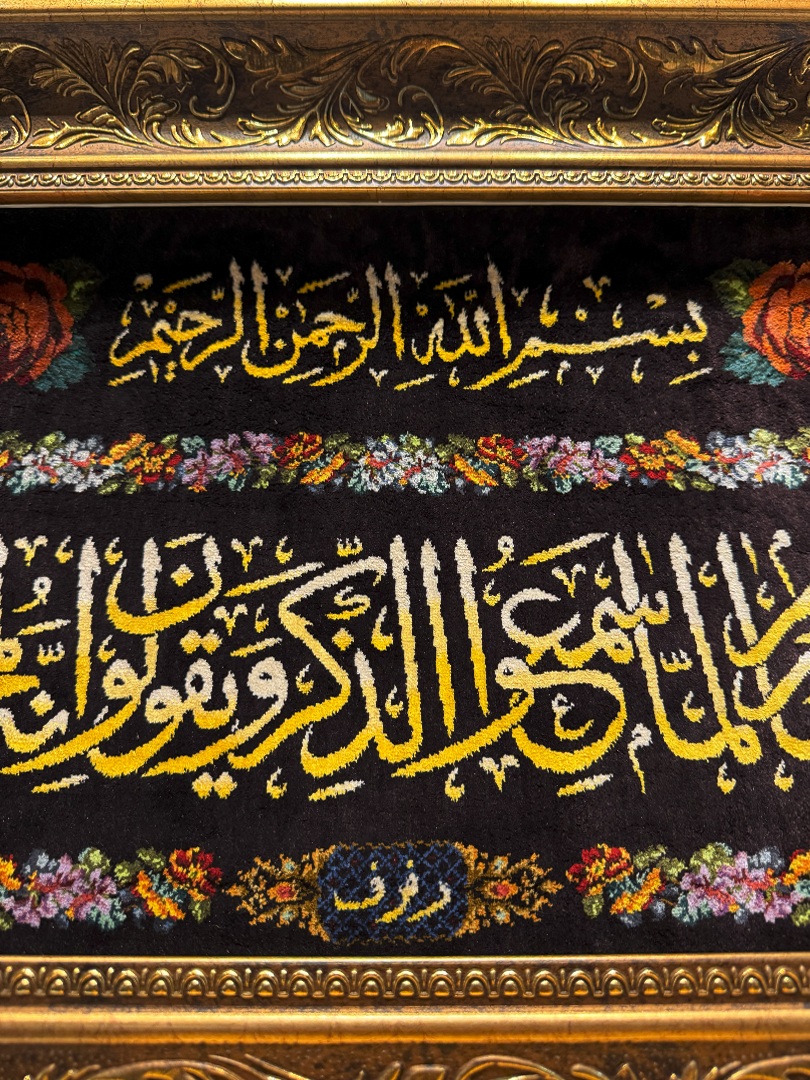 بِسْمِ اللَّهِ الرَّحْمَنِ الرَّحِيمِ
لَمَّا سَمِعُوا الذِّكْرَ وَيَقُولُونَ
رفرف